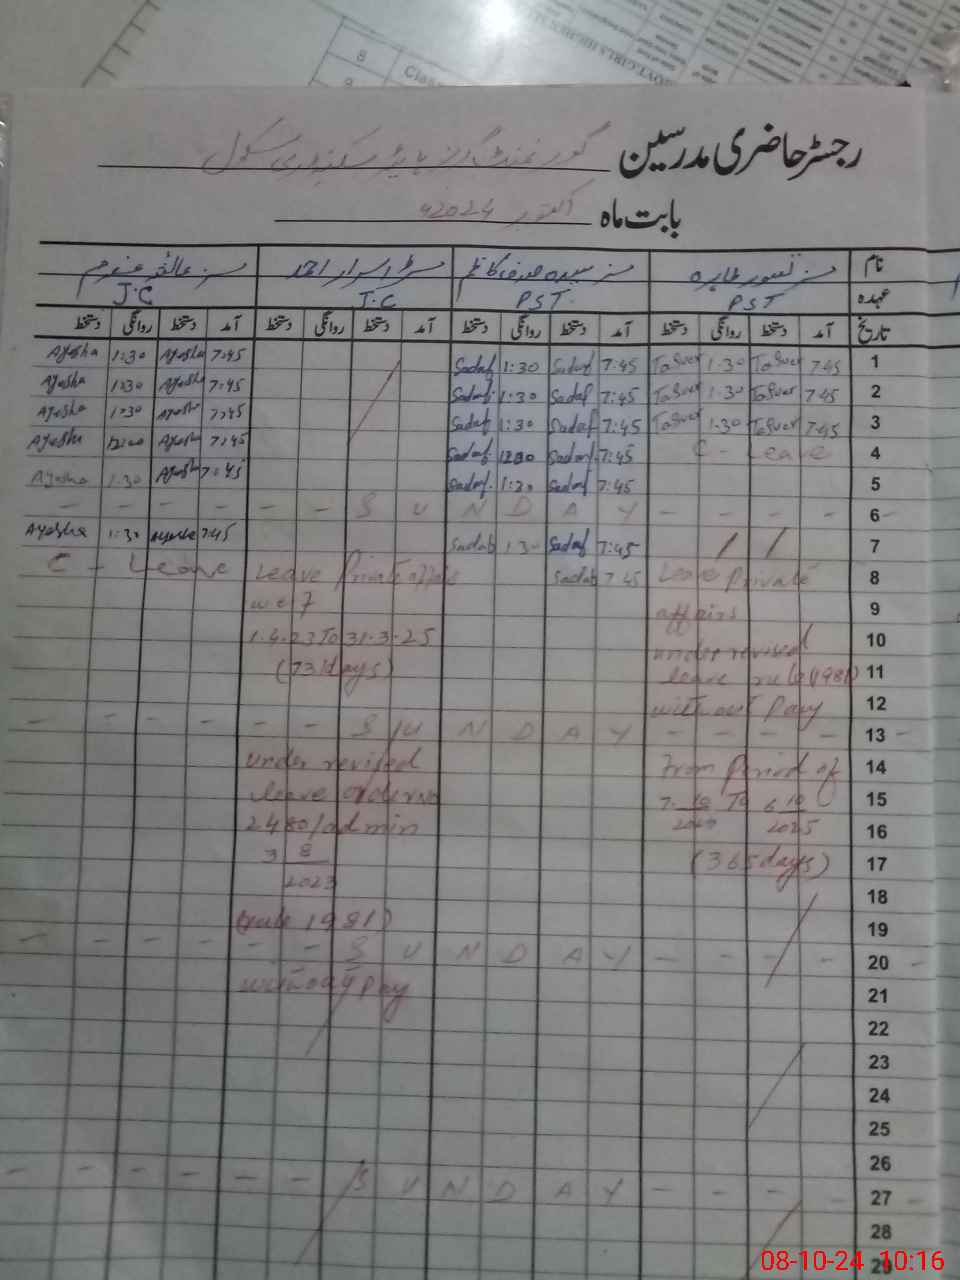 رجسٹر حاضری مدرسین گورنمنٹ گرلز ہائیر سیکنڈری سکول
بابت ماہ اکتوبر 2024ء
نام مسز تصور طاہرہ مسز سیدہ صدف کاظم مسز اسرار احمد مسز عائشہ
عہدہ PST PST. J.C J.C
تاریخ آمد دستخط روانگی دستخط آمد دستخط روانگی دستخط آمد دستخط روانگی دستخط آمد دستخط روانگی دستخط
Ayesha 1:30 Ayesha 7:45 Sadaf 1:30 Sadaf 7:45 Tasver 1.30 Tasver 7.45 1
Ayesha 1:30 Ayesha 7:45 Sadaf. 1:30 Sadaf 7:45 Tasver 1.30 Tasver 7.45 2
Ayesha 1:30 Ayesha 7:45 Sadaf. 1:30 Sadaf 7:45 Tasver 1.30 Tasver 7.45 3
Ayesha 12:00 Ayesha 7:45 Sadaf. Sadaf. 7:45 C - Leave 4
Ayesha 1:30 Ayesha 7:45 Sadaf. 1:30 Sadaf 7:45 5
- - - - - - S U N D A Y - - - - 6
Ayesha 1:30 Ayesha 7:45 Sadaf 1:30 Sadaf 7:45 / / 7
C - Leave Leave Private affairs Sadaf 7 45 Leave Private 8
w e f affairs 9
1.4.23 To 31.3.25 under revised 10
(731 days) leave rule (1981) 11
without Pay 12
- - - - - - S U N D A Y - - - - 13 -
under revised From Period of 14
leave order No 7 10 To 6 10 15
2480/admin 2024 2025 16
3 8 (365 days) 17
2023 18
(rule 1981) 19
- - - - - - S U N D A Y - - - - 20 -
without Pay 21
22
23
24
25
26
- - - - - - S U N D A Y - - - - 27 -
28
29
08-10-24 10:16